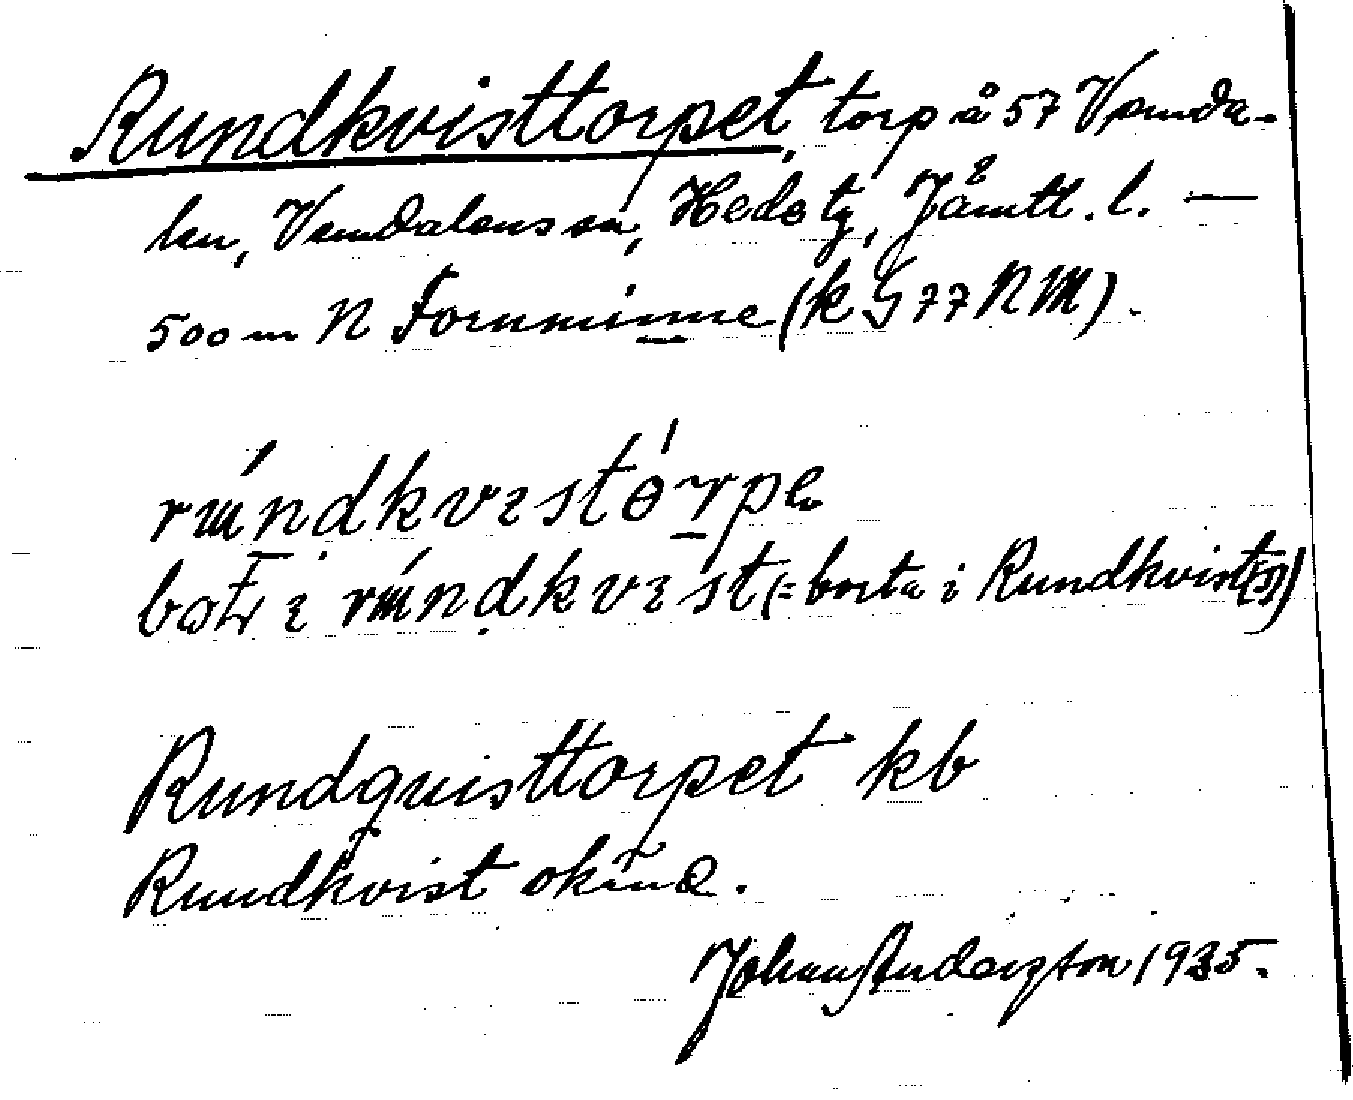 Rundkvisttorpet, torp å 57 Vemda-
len, Vemdalens sn, Heds tg, Jämtl. l. —
500 m N Fornminne (k G 77 N M).
rundkvɪstɵrpe
i rundkvɪst (= borta i Rundkvist(s))
Rundquisttorpet kb
Rundkvist okänd.
Johan Anderzson 1935.